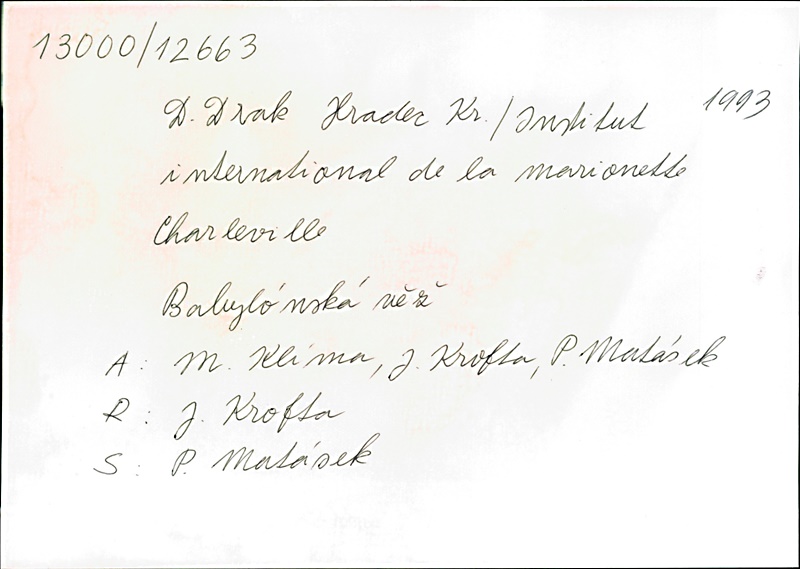 13000/12663
D. Drak Hradec Kr. / Institut 1993
international de la marionette
Charleville
Babylónská věž
A: M. Klíma, J. Krofta, P. Matásek
R: J. Krofta
S: P. Matásek